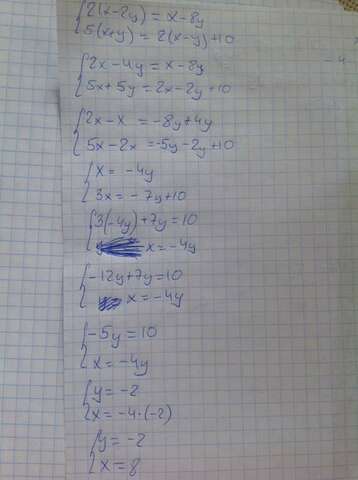 2(x-2y) = x-8y
5(x+y) = 2(x-y)+10
2x-4y = x-8y
5x+5y = 2x-2y+10
2x-x = -8y+4y
5x-2x = -5y-2y+10
x = -4y
3x = -7y+10
3(-4y)+7y=10
x=-4y
-12y+7y=10
x=-4y
-5y=10
x=-4y
y=-2
x=-4·(-2)
y=-2
x=8